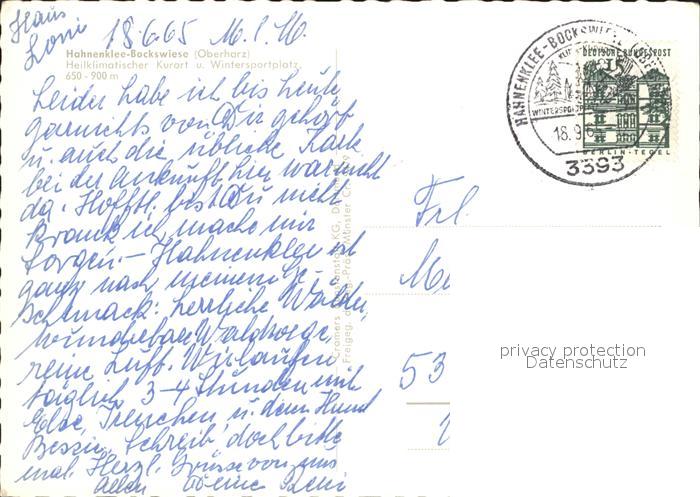 Haus
Loni
18.6.65 M. l. M.
Hahnenklee-Bockswiese (Oberharz)
Heilklimatischer Kurort u. Wintersportplatz
650 - 900 m
Leider habe ich bis heute
garnichts von Dir gehört
u. auch die übliche Karte
bei der Ankunft hier war nicht
da. Hofftl. bist Du nicht
krank ich mache mir
Sorgen. - Hahnenklee ist
ganz nach meinem Ge-
schmack: herrliche Wälder,
wunderbare Waldwege
reine Luft. Wir laufen
täglich 3-4 Stunden mit
Else, Trenchen u. dem Hund
Bessie. Schreib' doch bitte
mal. Herzl. Grüsse von uns
allen Deine Leni
Cramers KG, D
Freigeg. d. Reg.-Präs. Münster
HAHNENKLEE-BOCKSWIESE
WINTERSPORT
18.9.6
3393
DEUTSCHE BUNDESPOST
15
BERLIN-TEGEL
Frl.
53
privacy protection
Datenschutz